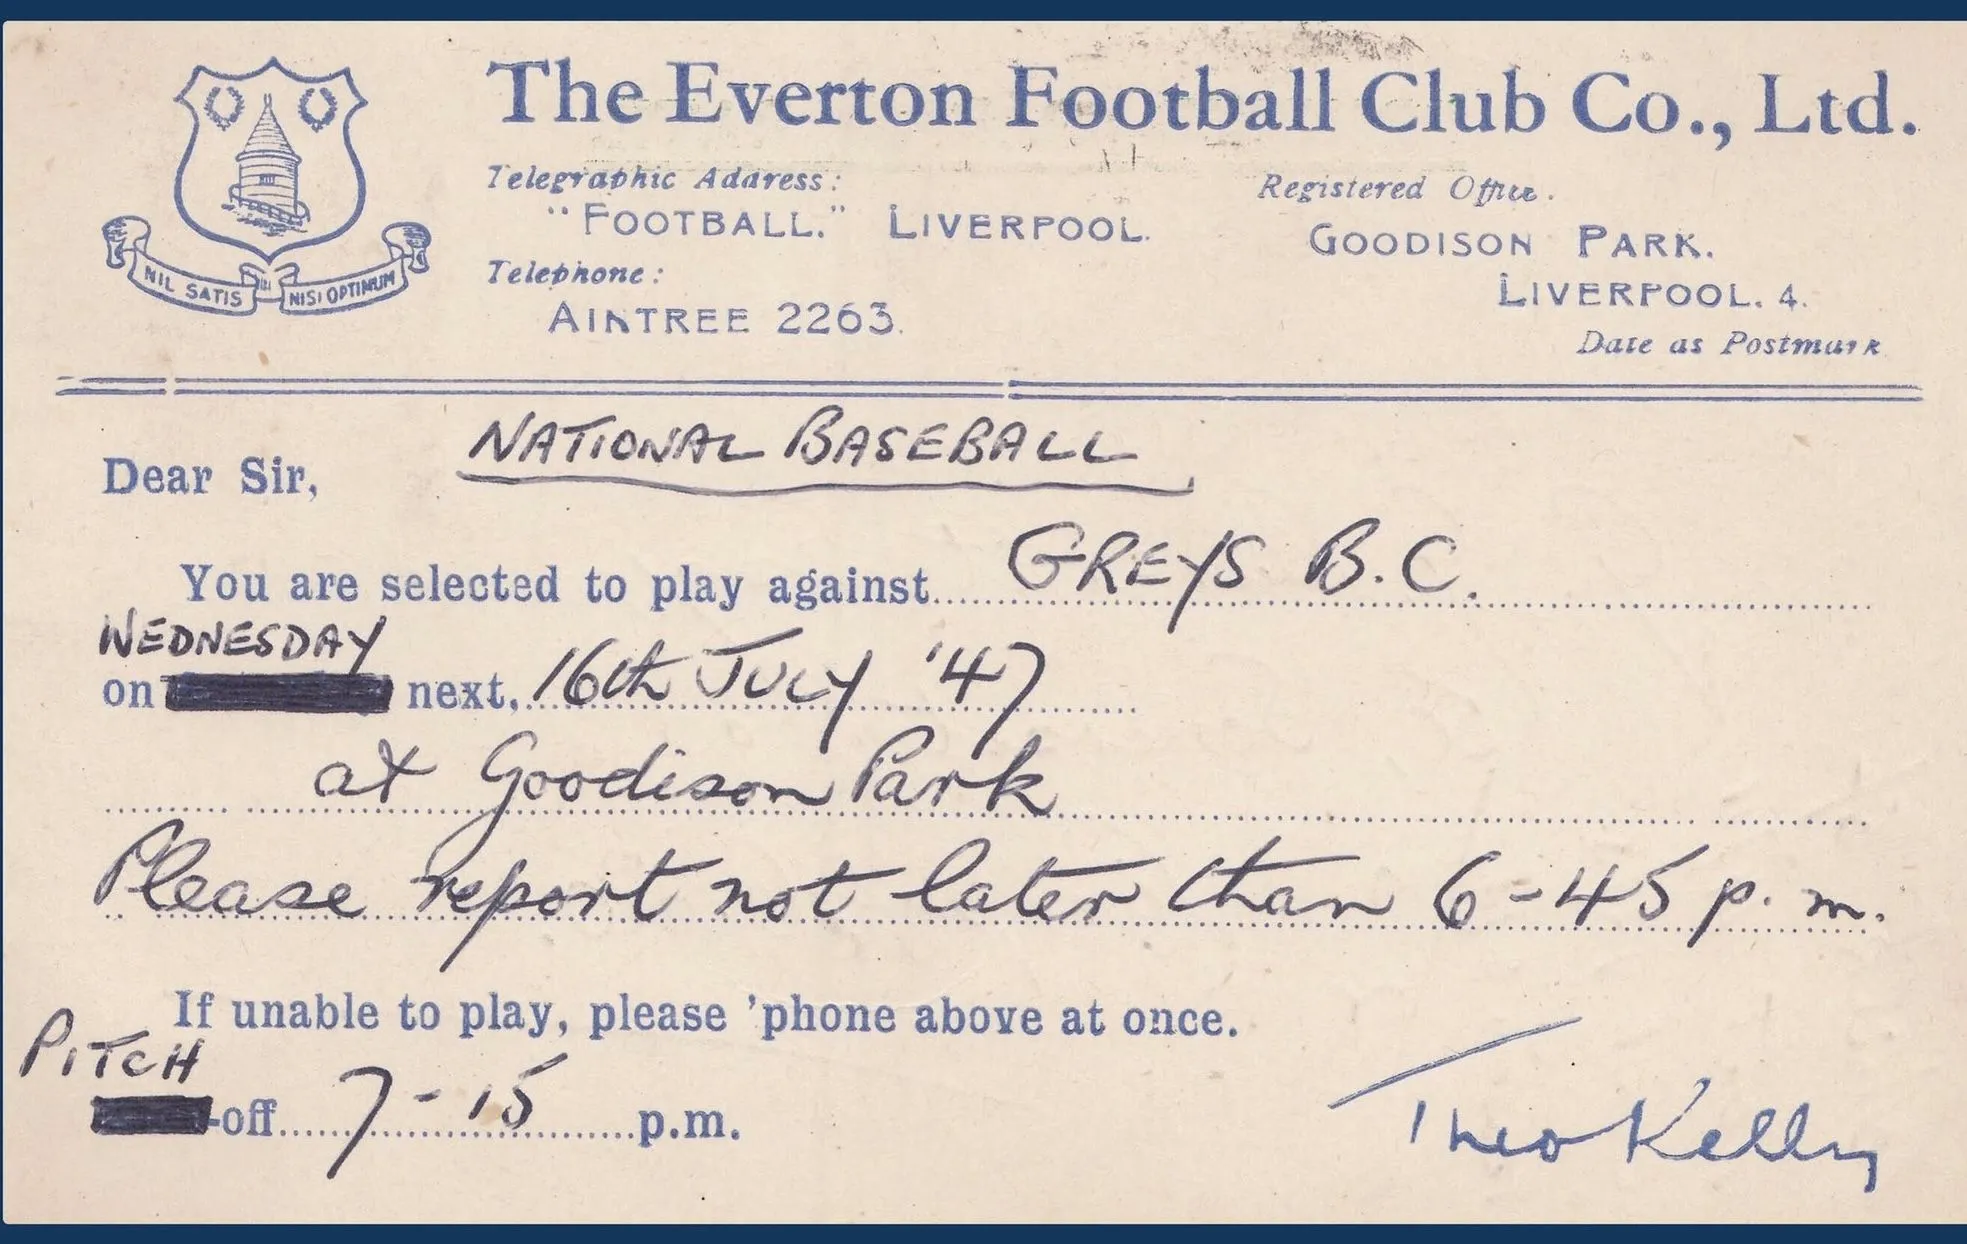 The Everton Football Club Co., Ltd.
Telegraphic Address:
"FOOTBALL." LIVERPOOL.
Telephone:
AINTREE 2263.
Registered Office.
GOODISON PARK.
LIVERPOOL. 4.
Date as Postmark
NIL SATIS NISI OPTIMUM
NATIONAL BASEBALL
Dear Sir,
You are selected to play against GREYS B.C.
WEDNESDAY
on next, 16th JULY '47
at Goodison Park
Please report not later than 6-45 p.m.
If unable to play, please 'phone above at once.
PITCH
-off 7-15 p.m.
Theo Kelly